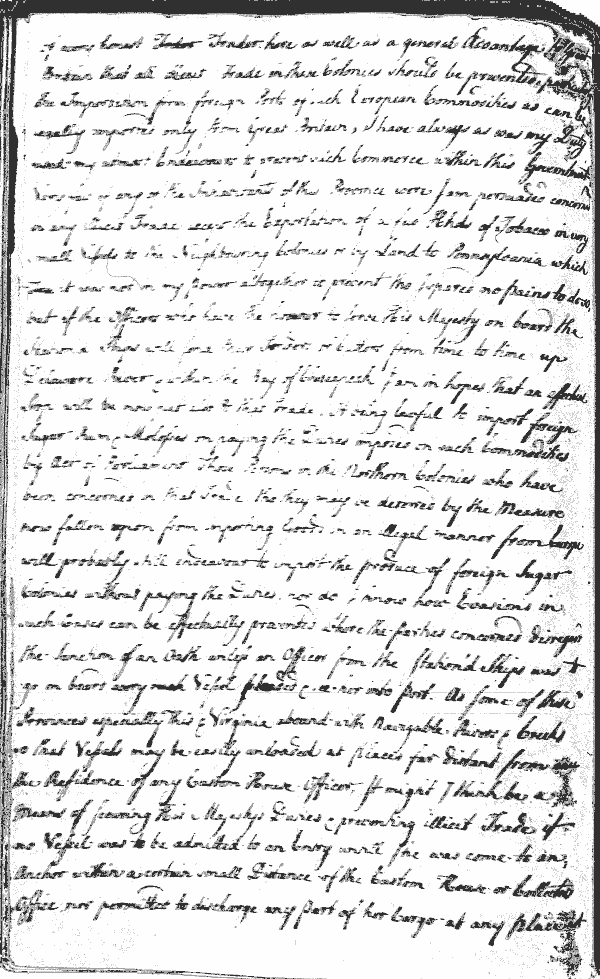 of every honest Trader here as well as a general Advantage to
Britain that all illicit Trade in these Colonies should be prevented
the Importation from foreign Ports of such European Commodities as can be
legally imported only from Great Britain, I have always as was my Duty
my utmost Endeavours to prevent such Commerce within this Government
of any of the Inhabitants of this Province were I am persuaded concerned
in any illicit Trade the Exportation of a few Hhds of Tobacco in very
small Vessels to the Neighbouring Colonies or by Land to Pennsylvania which
it was not in my Power altogether to prevent tho I spared no Pains to do so,
but if the Officers who have the honour to serve His Majesty on board the
Ships will send their Tenders or Cutters from time to time up
Delaware River & within the Bay of Chesapeak I am in hopes that an effectual
Stop will be now put to that Trade. It being lawful to import foreign
Sugar Rum & Molosses on paying the Duties imposed on such Commodities
by Act of Parliament Those Persons in the Northern Colonies who have
been concerned in that Trade tho they may be deterred by the Measure
now fallen upon from importing Goods in an illegal manner from Europe
will probably still endeavour to import the produce of foreign Sugar
Colonies without paying the Duties, nor do I know how Evasions in
such Cases can be effectually prevented where the parties concerned disregard
the Sanction of an Oath unless an Officer from the Stationd Ships was to
go on board every such Vessel into Port. As some of these
Provinces especially this & Virginia abound with Navigable Rivers & Creeks
so that Vessels may be easily unloaded at places far distant from
the Residence of any Custom House Officer, It might I think be a
Means of securing His Majestys Duties & preventing illicit Trade if
no Vessel was to be admitted to an Entry until she was come to an
Anchor within a certain small Distance of the Custom House or Collectors
Office, nor permitted to discharge any Part of her Cargo at any place